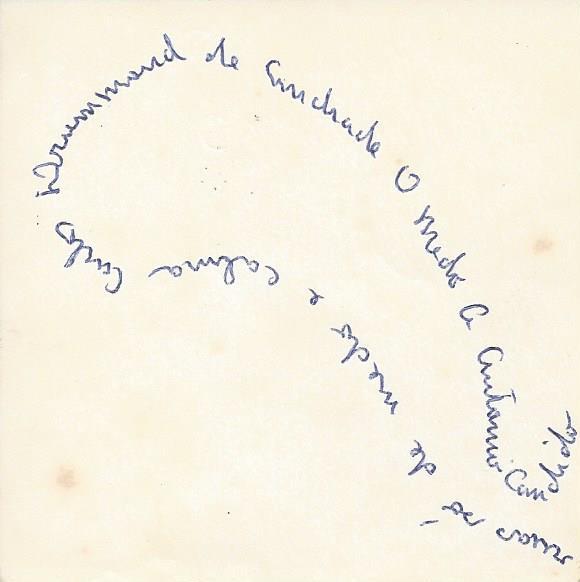 Carlos Drummond de Andrade O Medo A Antonio Candido
ruas só de medo e calma